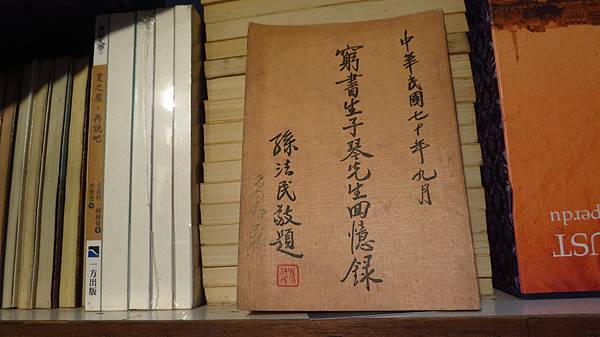 中華民國七十年九月
窮書生子琴先生回憶錄
孫法民敬題
夏之屋‧再說吧
一方出版
UST
perdu